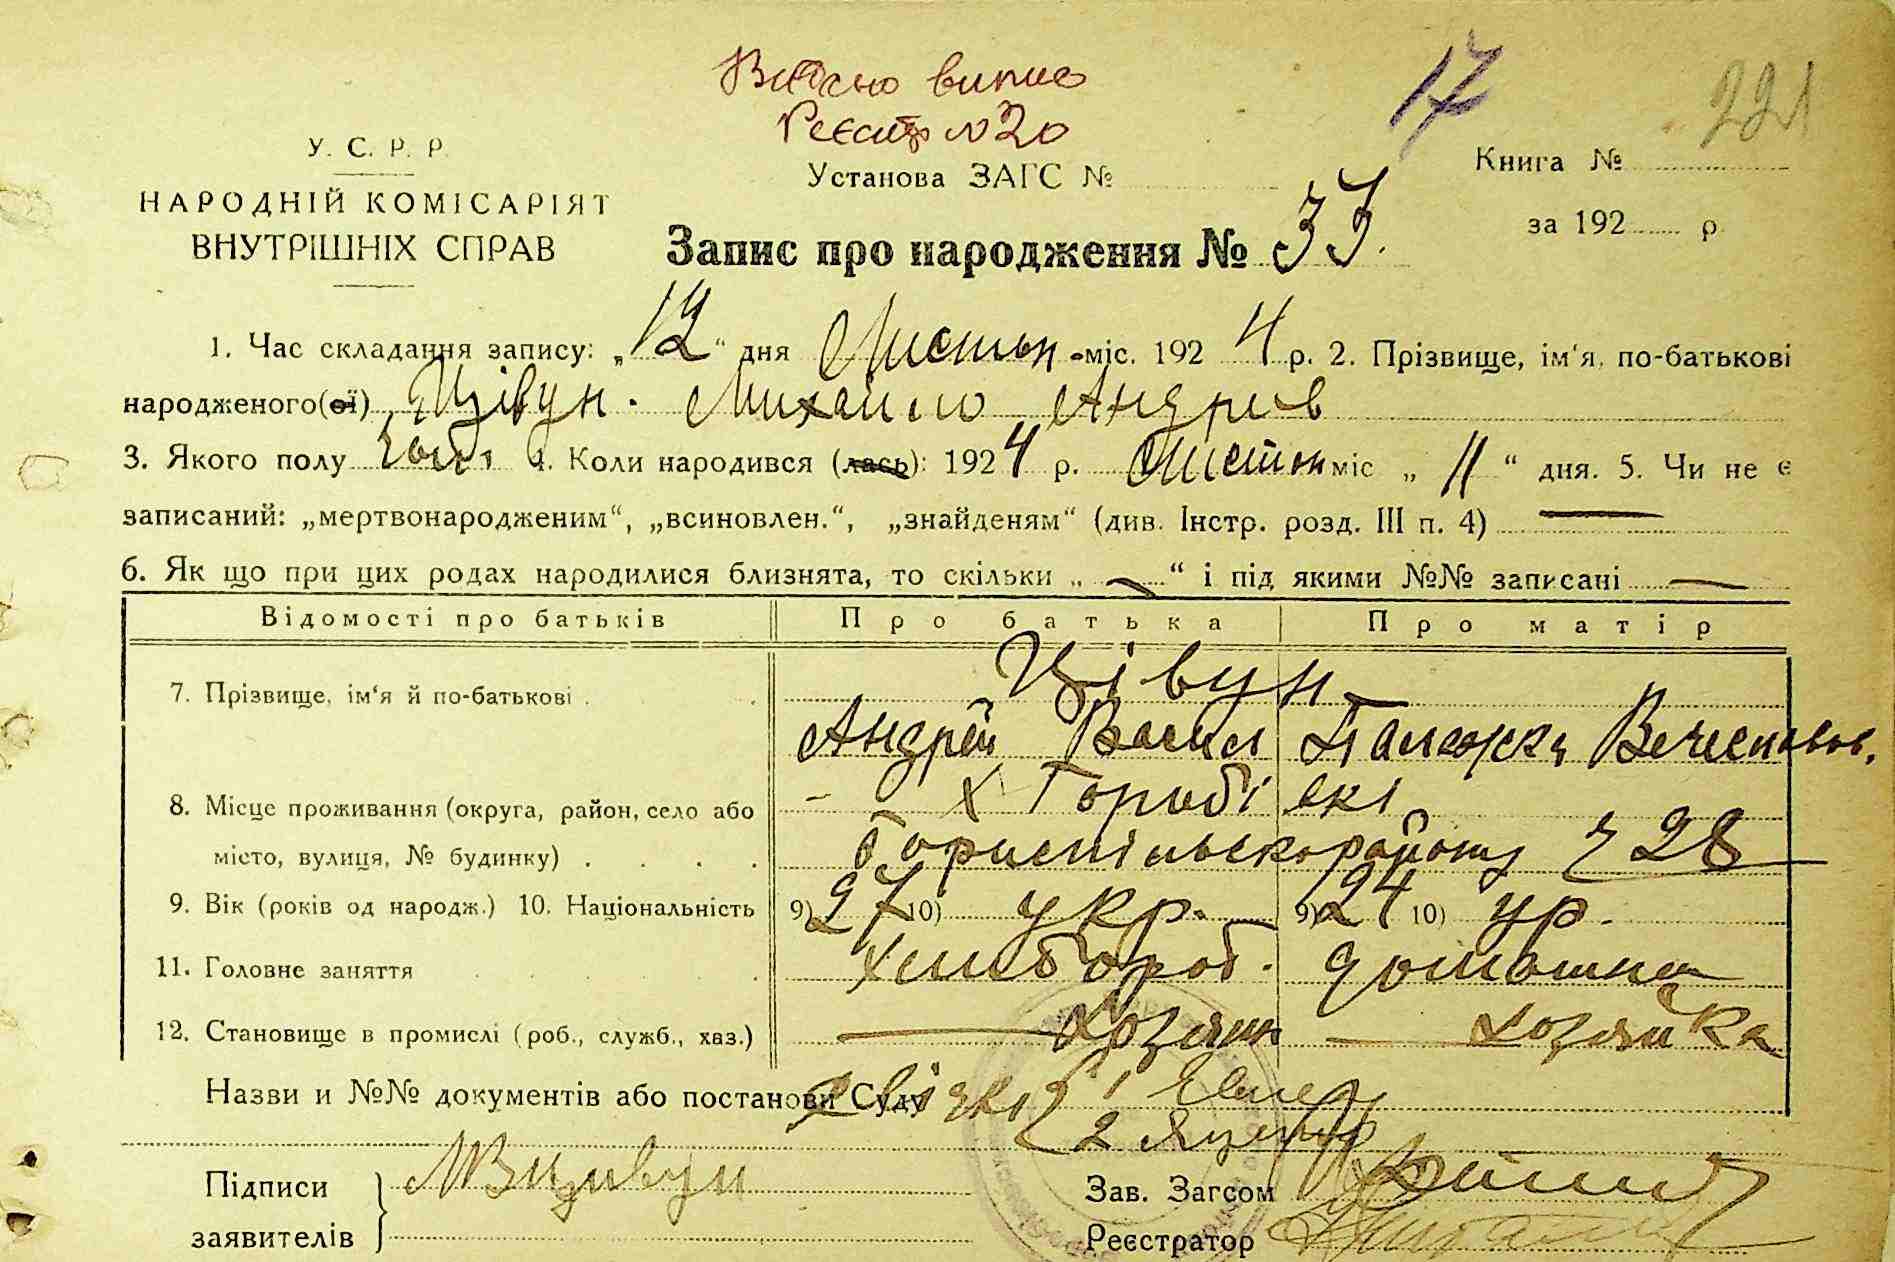 17
221
Видано випис
Реєстр №20
У. С. Р. Р.
НАРОДНІЙ КОМІСАРІЯТ
ВНУТРІШНІХ СПРАВ
Установа ЗАГС №
Книга №
за 192 р.
Запис про народження № 33.
1. Час складання запису: „12“ дня Листоп міс. 1924 р. 2. Прізвище, ім‘я, по-батькові
народженого(ої) Цівун. Михайло Андрієв
3. Якого полу чол. 4. Коли народився (лась): 1924 р. Листоп міс „11“ дня. 5. Чи не є
записаний: „мертвонародженим“, „всиновлен.“, „знайденям“ (див. Інстр. розд. III п. 4) —
6. Як що при цих родах народилися близнята, то скільки „—“ і під якими №№ записані —
Відомості про батьків Про батька Про матір
7. Прізвище, ім‘я й по-батькові . . Цівун
Андрій Васил Палажка Вечеславов.
8. Місце проживання (округа, район, село або - х Горобі вкі
місто, вулиця, № будинку) . . . . Бориспільск району ч 28
9. Вік (років од народж.) 10. Національність 9) 27 10) укр. 9) 24 10) ур.
11. Головне заняття . . . хлібороб. домашня
12. Становище в промислі (роб., служб., хаз.) — хозяин — хозяйка
Назви и №№ документів або постанови Суду 1
2
Підписи
заявителів
Зав. Загсом
Реєстратор